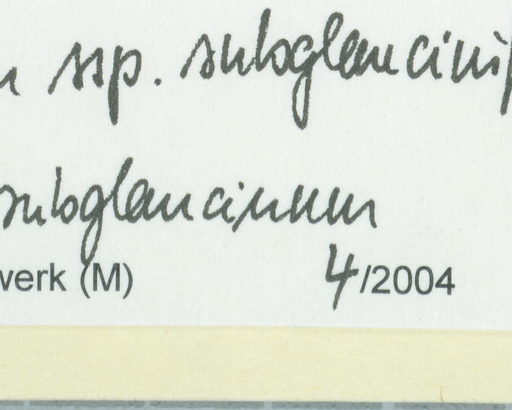 ssp. subglaucinum
subglaucinum
werk (M) 4/2004